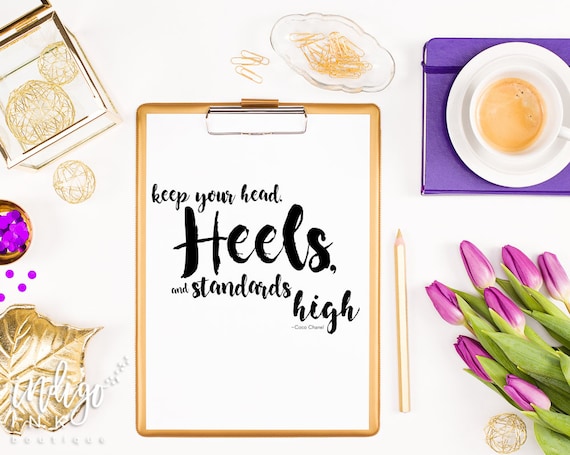 keep your head.
Heels,
and standards
high
~Coco Chanel
indigo
INK
boutique